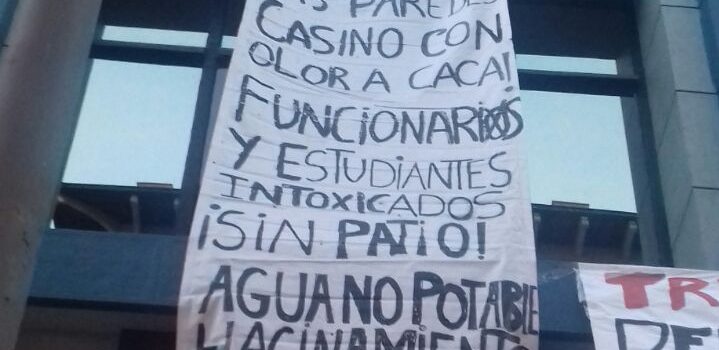 PAREDES
CASINO CON
OLOR A CACA!
FUNCIONARIOS
Y ESTUDIANTES
INTOXICADOS
¡SIN PATIO!
AGUA NO POTABLE
HACINAMIENTO
TR
DE